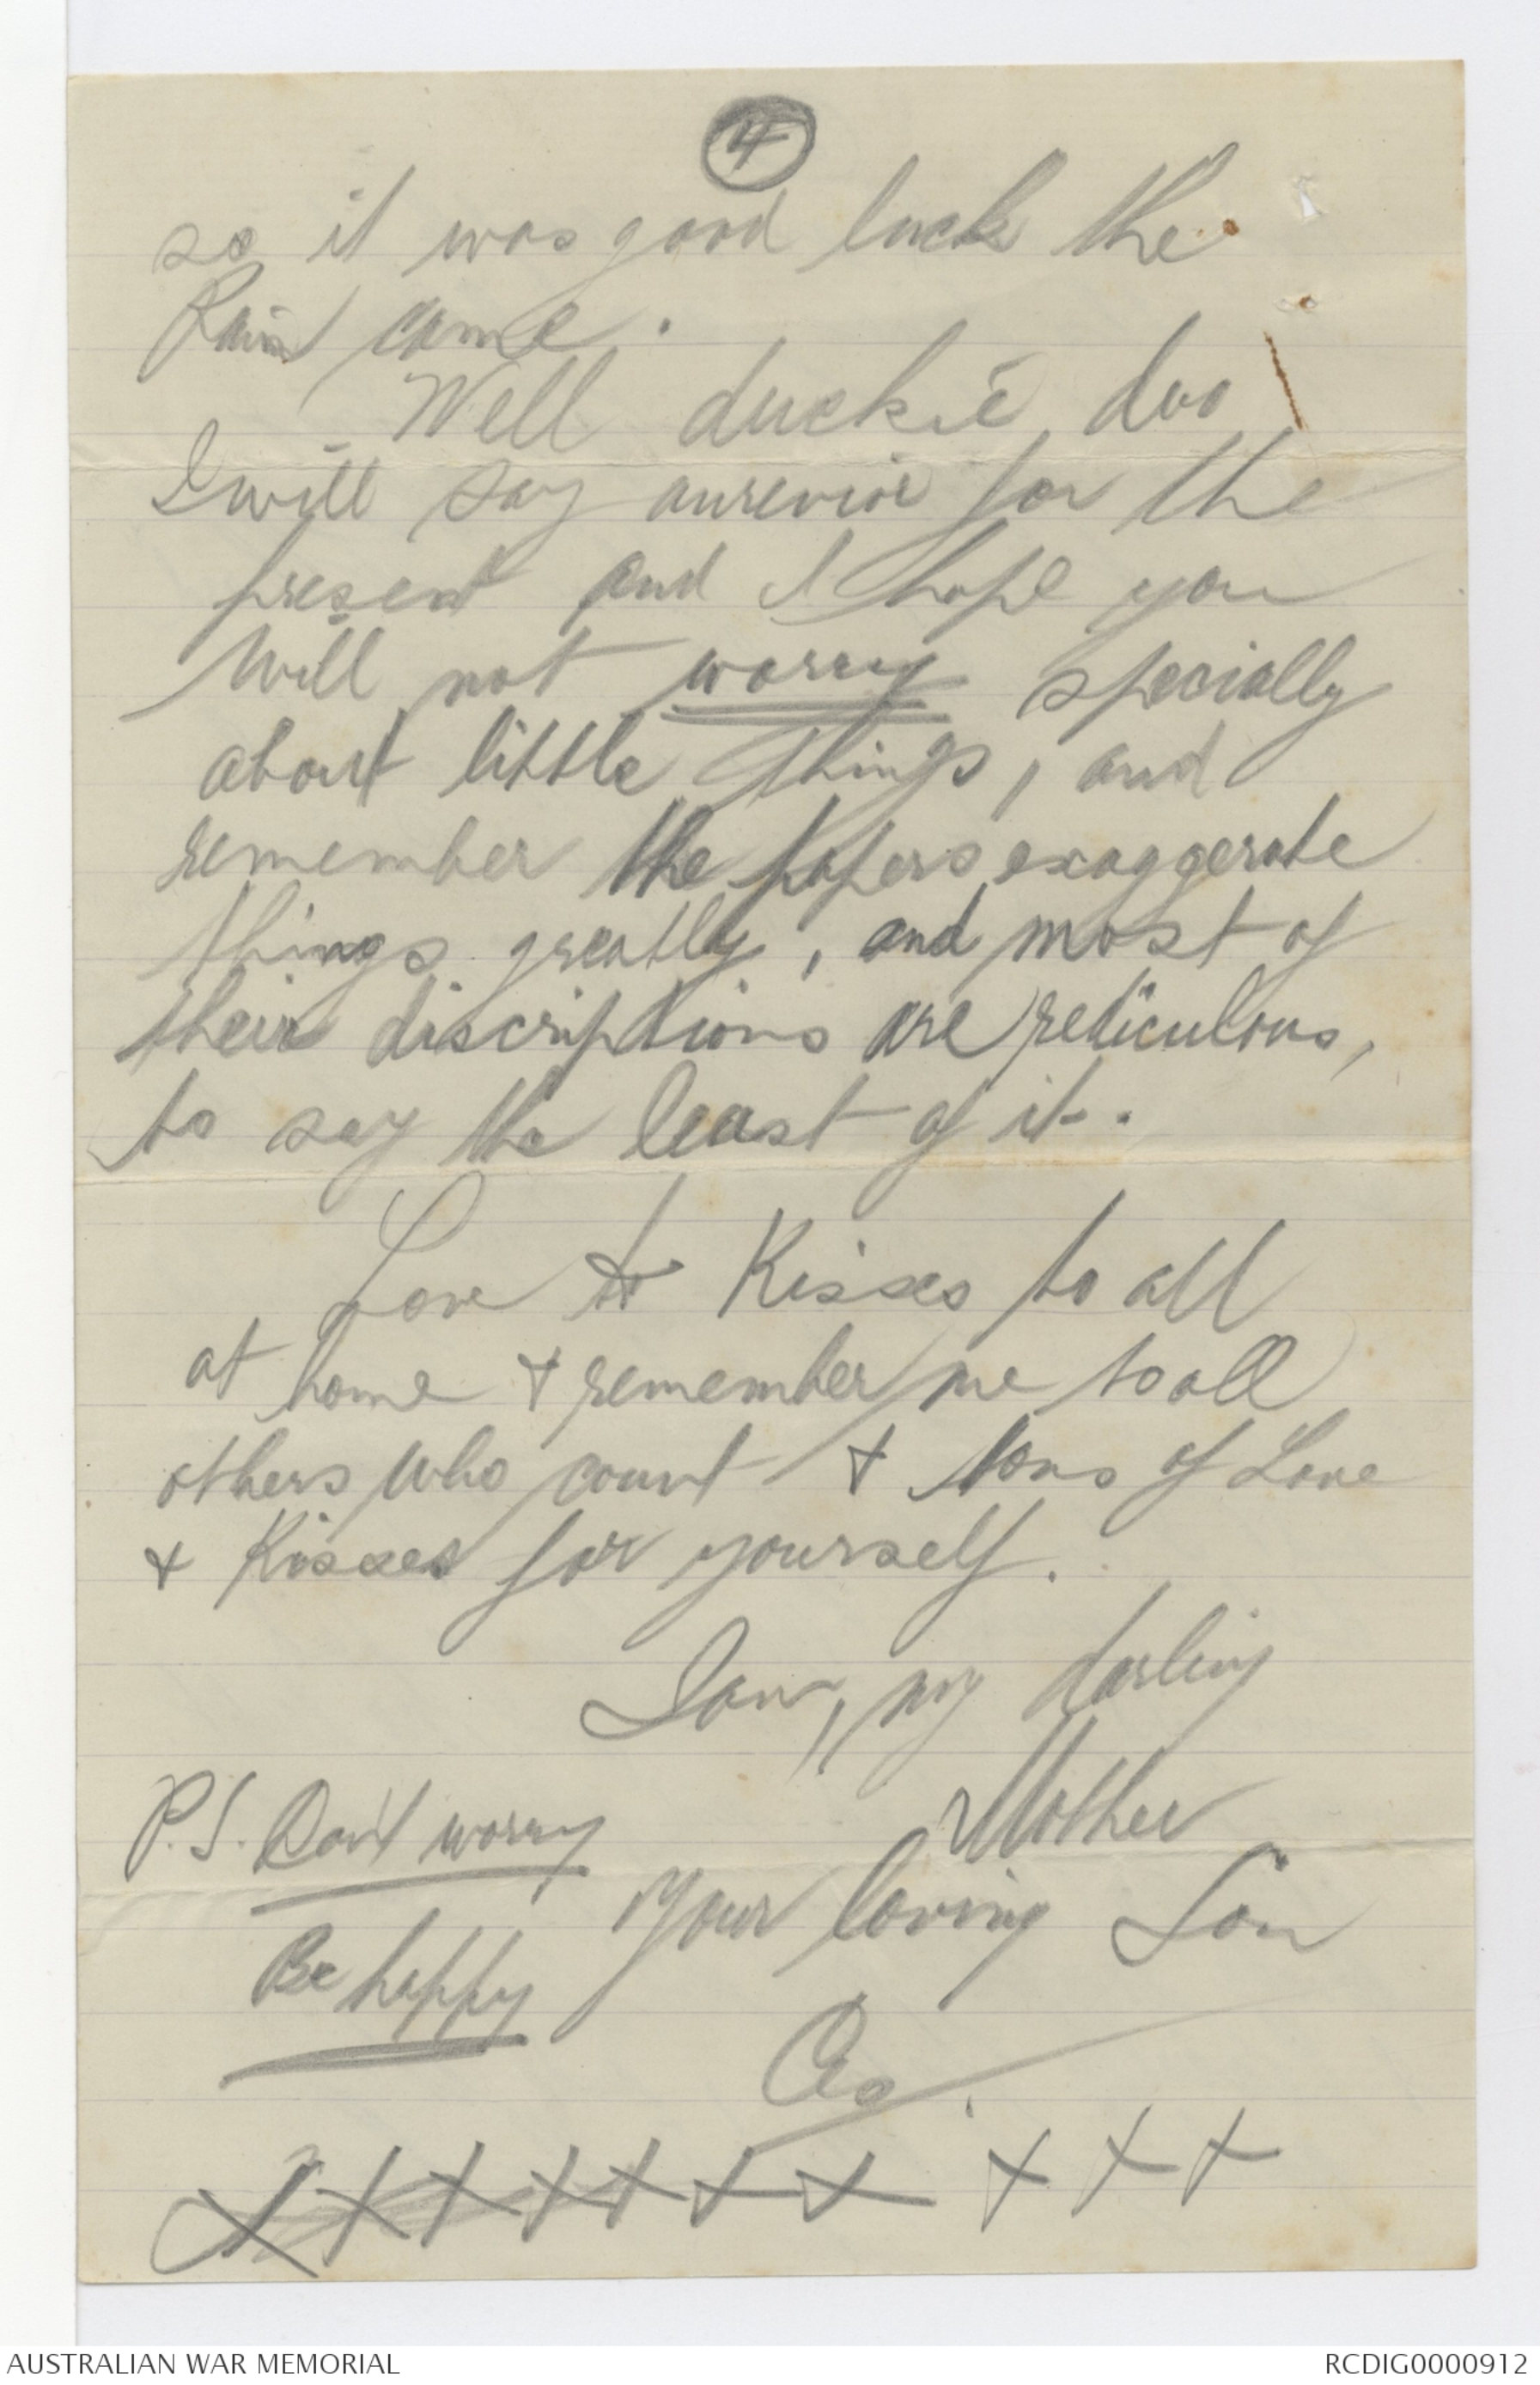 4
so it was good luck the
Rain came.
Well duckie doo
I will say aurevior for the
present and I hope you
Will not worry specially
about little things, and
remember the papers exaggerate
things greatly, and most of
their discriptions are rediculous,
to say the least of it.
Love & Kisses to all
at home & remember me to all
others who count & tons of Love
& Kisses for yourself.
I am, my darling
Mother
P.S. Don't worry
Your loving Son
Be happy
X X X X X X X X X X
AUSTRALIAN WAR MEMORIAL
RCDIG0000912